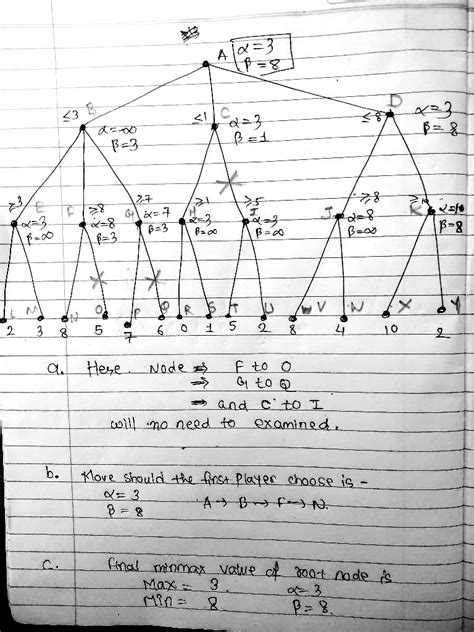 A α=3
β=8
≤3 B α=-∞
β=3
≤1 C α=3
β=1
≤8 D α=3
β=8
≥3 E α=3
β=∞
F ≥8 α=8
β=3
G ≥7 α=7
β=3
H ≥1 α=3
β=∞
I ≥5 α=3
β=∞
J ≥8 α=8
β=∞
K α=10
β=8
L M N O P Q R S T U V W X Y
2 3 8 5 7 6 0 1 5 2 8 4 10 2
a. Here Node ⇒ F to O
⇒ G to Q
⇒ and C to I
will no need to examined.
b. Move should the first player choose is -
α= 3
β= 8 A → B → F → N.
c. final minmax value of root node is
Max = 3 α= 3
Min = 8 β= 8